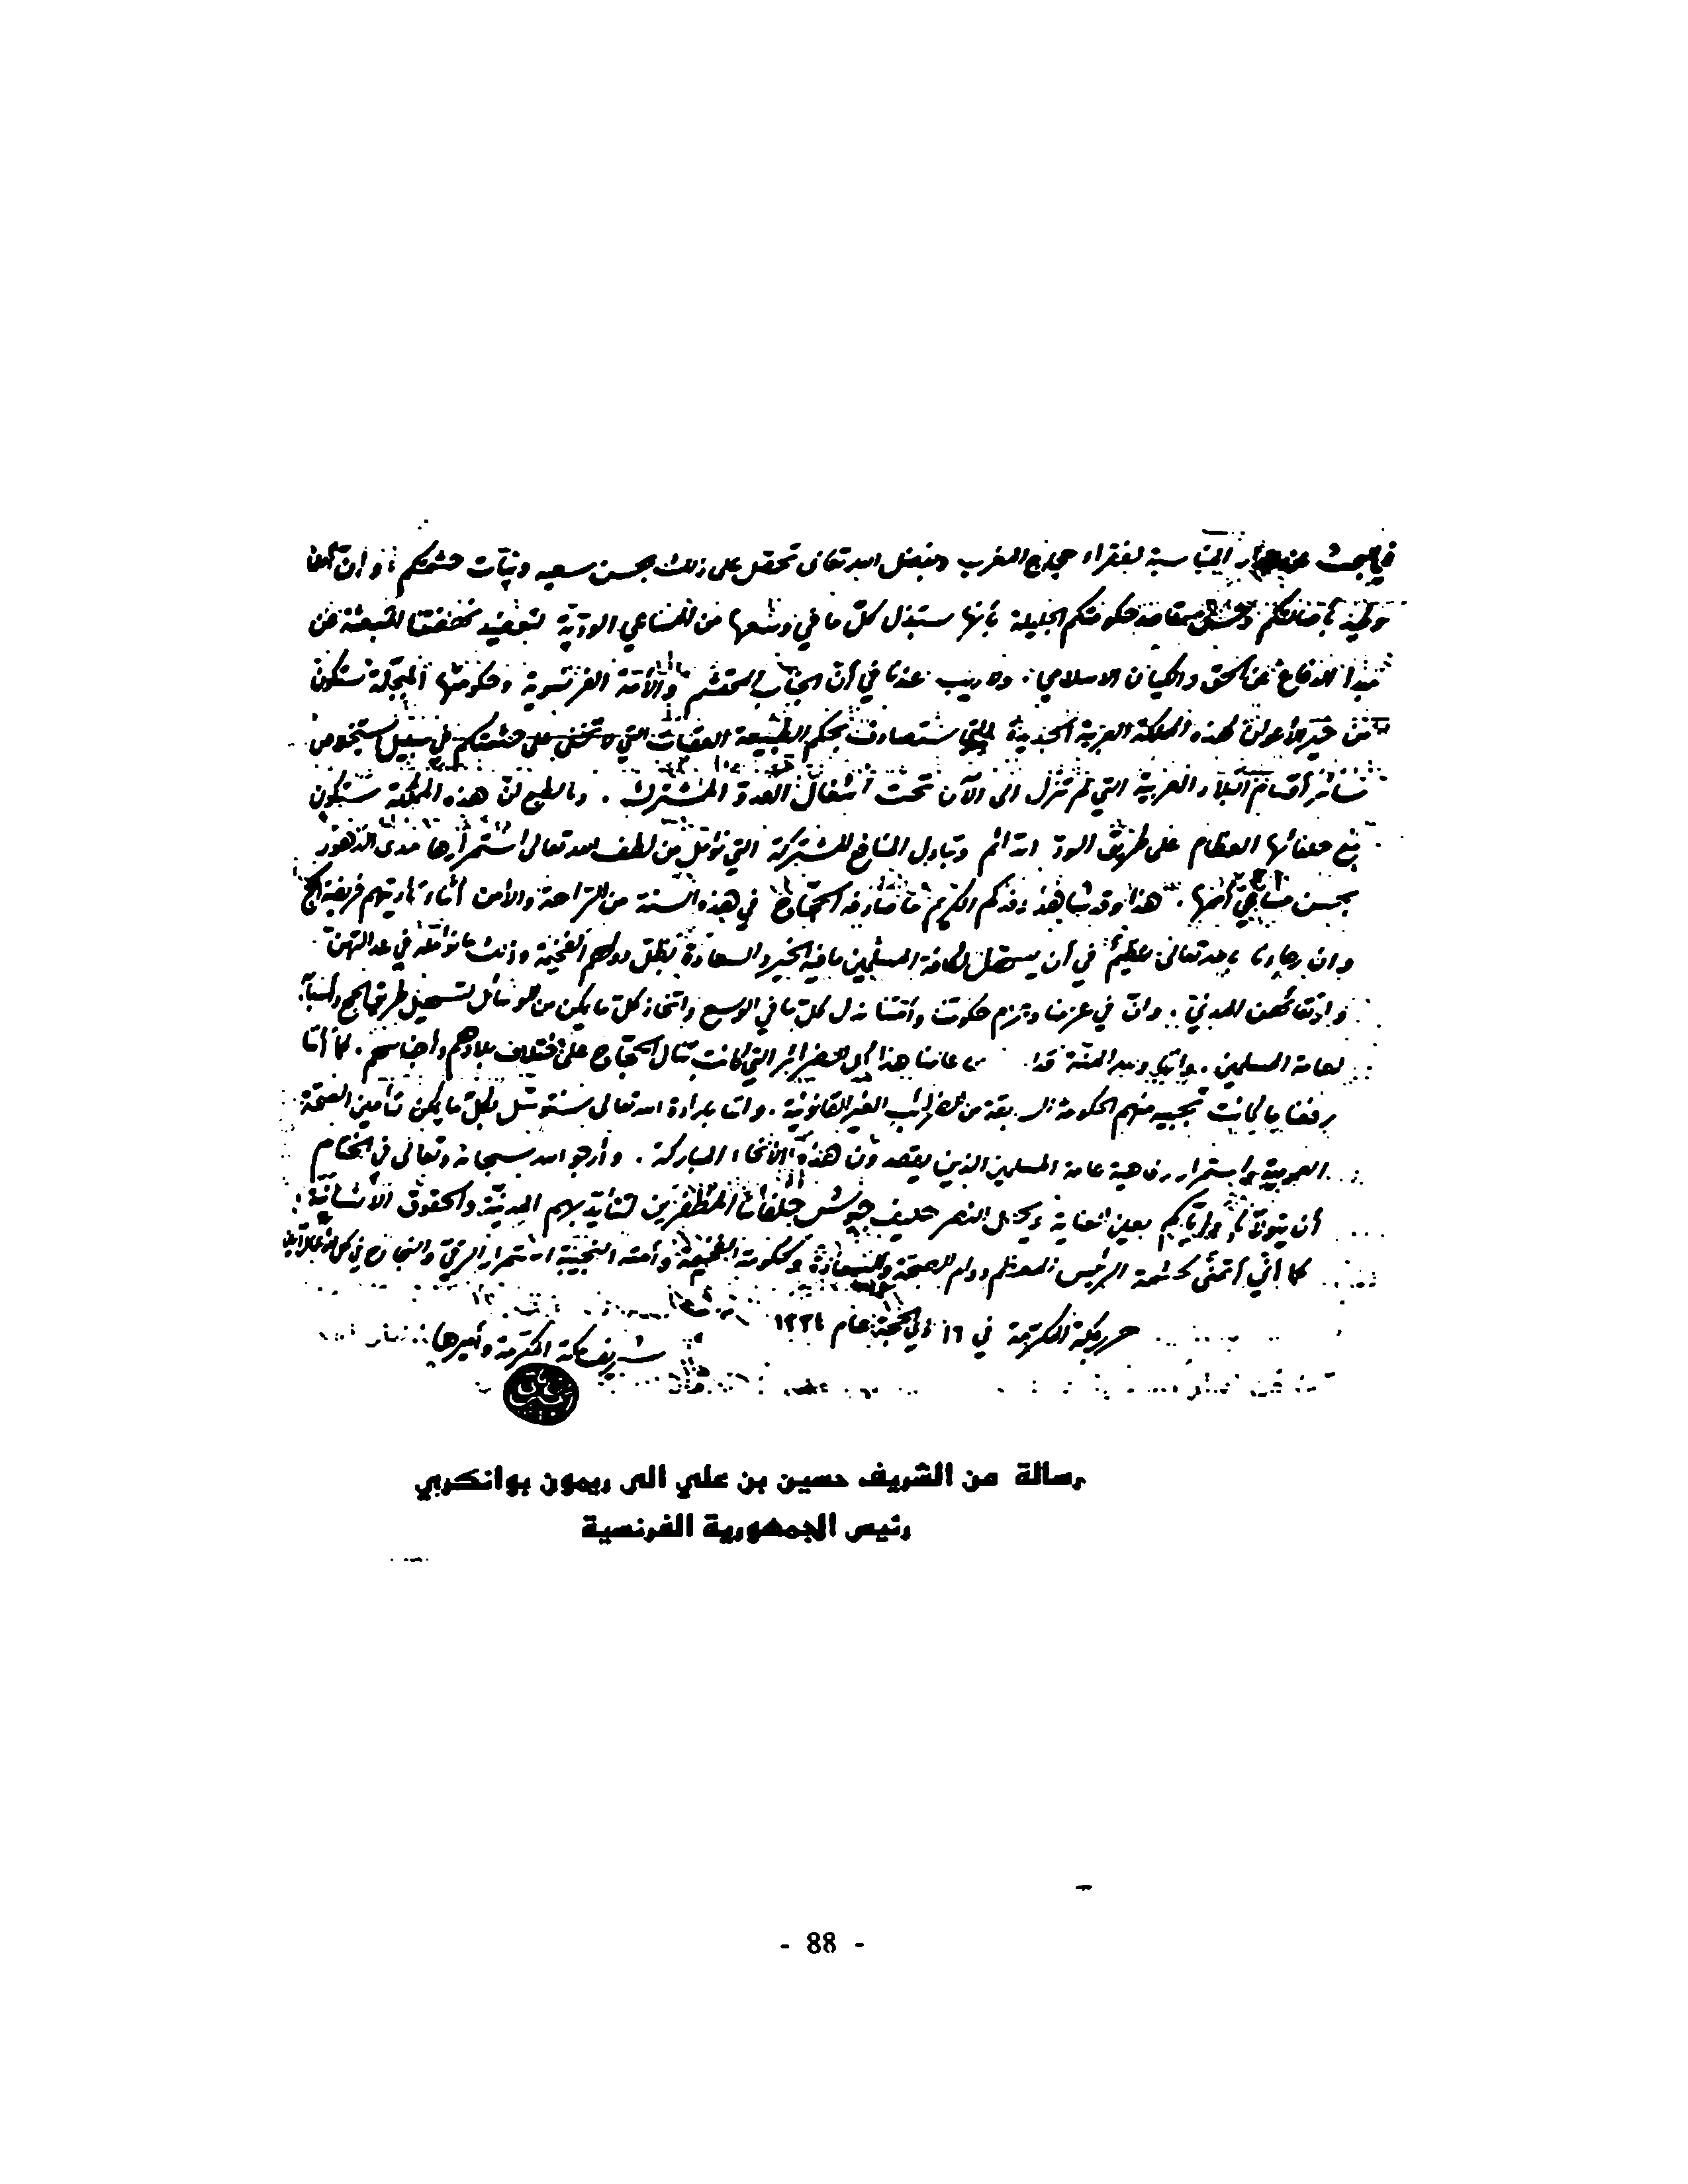 في البحث عن الدار المناسبة لفقراء حجاج المغرب وبفضل الله تعالى تحصل على ذلك بحسن سعيه ونيّات حشمتكم، وانّ آمالنا
وطيدة بأصالتكم وحسن مقاصد حكومتكم الجليلة بأنها ستبذل كلّ ما في وسعها من المساعي الودّيّة لتعضيد نهضتنا المنبعثة عن
مبدأ الدفاع عن الحق والكيان الاسلامي. ولا ريب عندنا في أنّ الجناب المحتشم والأمّة الفرنسوية وحكومتها المبجّلة ستكون
من خير الأعوان لهذه المملكة العربية الجديدة التي ستصادف بحكم الطبيعة العقبات التي لا تخفى على حشمتكم في سبيل استخلاص
سائر أقسام البلاد العربية التي لم تزل الى الآن تحت أشغال العدوّ المشترك. وبالطبع لأن هذه المملكة ستكون
مع حلفائها العظام على طريق الودّ الدائم وتبادل المنافع المشتركة التي نؤمّل من لطف الله تعالى استمرارها مدى الدهور
بحسن مساعي أمتها. هذا وقد شاهد وفدكم الكريم ما صادفه الحجّاج في هذه السنة من الراحة والأمن أثناء تأديتهم فريضة الحج
وان رجاءنا بالله تعالى عظيم في أن يستقبل كافة المسلمين ما فيه الخير والسعادة بظل دولهم الفخيمة وذلك ما نؤمّله في عدالتهنّ
وارتقائهن المدنيّ. وانّ في عزمنا وعزم حكومتنا وأمّتنا بذل كلّ ما في الوسع واتخاذ كلّ ما يمكن من الوسائل لتسهيل طريق الحج وأسبابه
لعامة المسلمين. وانّنا ولله المنّة قد عامنا هذا كل الضرائر التي كانت تنال الحجّاج على اختلاف بلادهم وأجناسهم. كما أنّا
رفعنا ما كانت تجبيه منهم الحكومة السابقة من الضرائب الغير القانونيّة. وانّا بإرادة الله تعالى سنتوسّل بكلّ ما يمكن لتأمين الصحّة
العمومية واستمرار رفاهية عامة المسلمين الذين يقصدون هذه الأنحاء المباركة. وأرجو الله سبحانه وتعالى في الختام
أن يتولّانا وايّاكم بعين العناية ويجعل النصر حليف جيوش حلفائنا المظفّرين لتتأيّد بهم المدنيّة والحقوق الانسانيّة
كما أنّي أتمنّى لحشمة الرئيس المعظم دوام الصحّة والسعادة ولحكومته الفخيمة وأمته النجيبة استمرار الرقيّ والنجاح في كل
حرر بمكة المكرّمة في ١٦ ذي الحجة عام ١٣٣٤
شريف مكة المكرّمة وأميرها
رسالة من الشريف حسين بن علي الى ريمون بوانكريي
رئيس الجمهورية الفرنسية
- 88 -